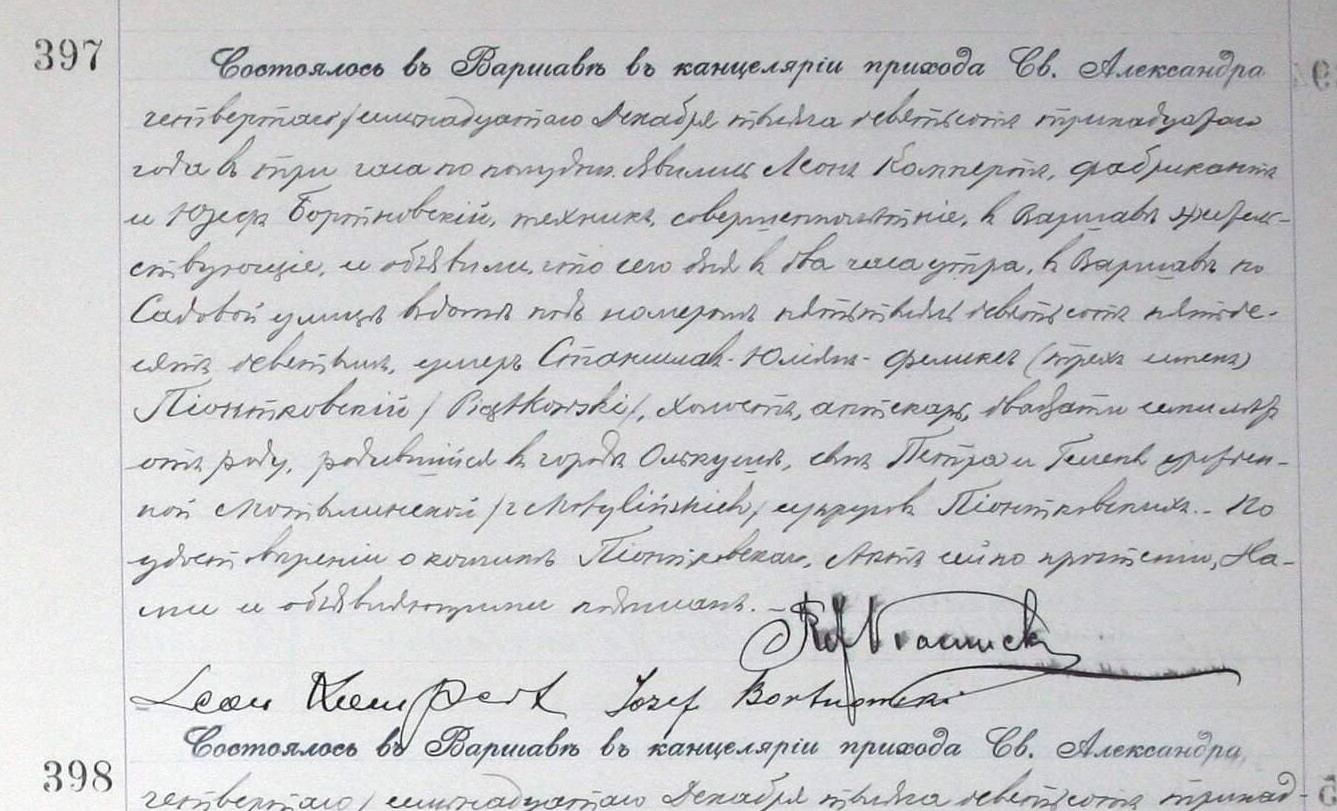 397
Состоялось въ Варшавѣ въ канцеляріи прихода Св. Александра
четвертаго/семнадцатаго Декабря тысяча девятьсотъ тринадцатаго
года въ три часа по полудни. Явились Леонъ Кемпертъ, фабрикантъ
и Юзефъ Бортновскій, техникъ, совершеннолѣтніе, въ Варшавѣ житель-
ствующіе, и объявили, что сего дня въ два часа утра, въ Варшавѣ по
Садовой улицѣ въ домѣ подъ номеромъ пять тысячъ девятьсотъ пятьде-
сятъ девятымъ, умеръ Станиславъ-Юліянъ-Феликсъ (трехъ именъ)
Піонтковскій /Piątkowski/, холостъ, аптекарь, двадцати семи лѣтъ
отъ роду, родившійся въ городѣ Олькушѣ, сынъ Петра и Гелены урожден-
ной Мотылинской /z Motylińskich/ супруговъ Піонтковскихъ.- По
удостовѣреніи о кончинѣ Піонтковскаго, Актъ сей по прочтеніи, На-
ми и объявляющими подписанъ.-
Leon Kempert Józef Bortnowski
Состоялось въ Варшавѣ въ канцеляріи прихода Св. Александра
398
четвертаго/семнадцатаго Декабря тысяча девятьсотъ тринад-